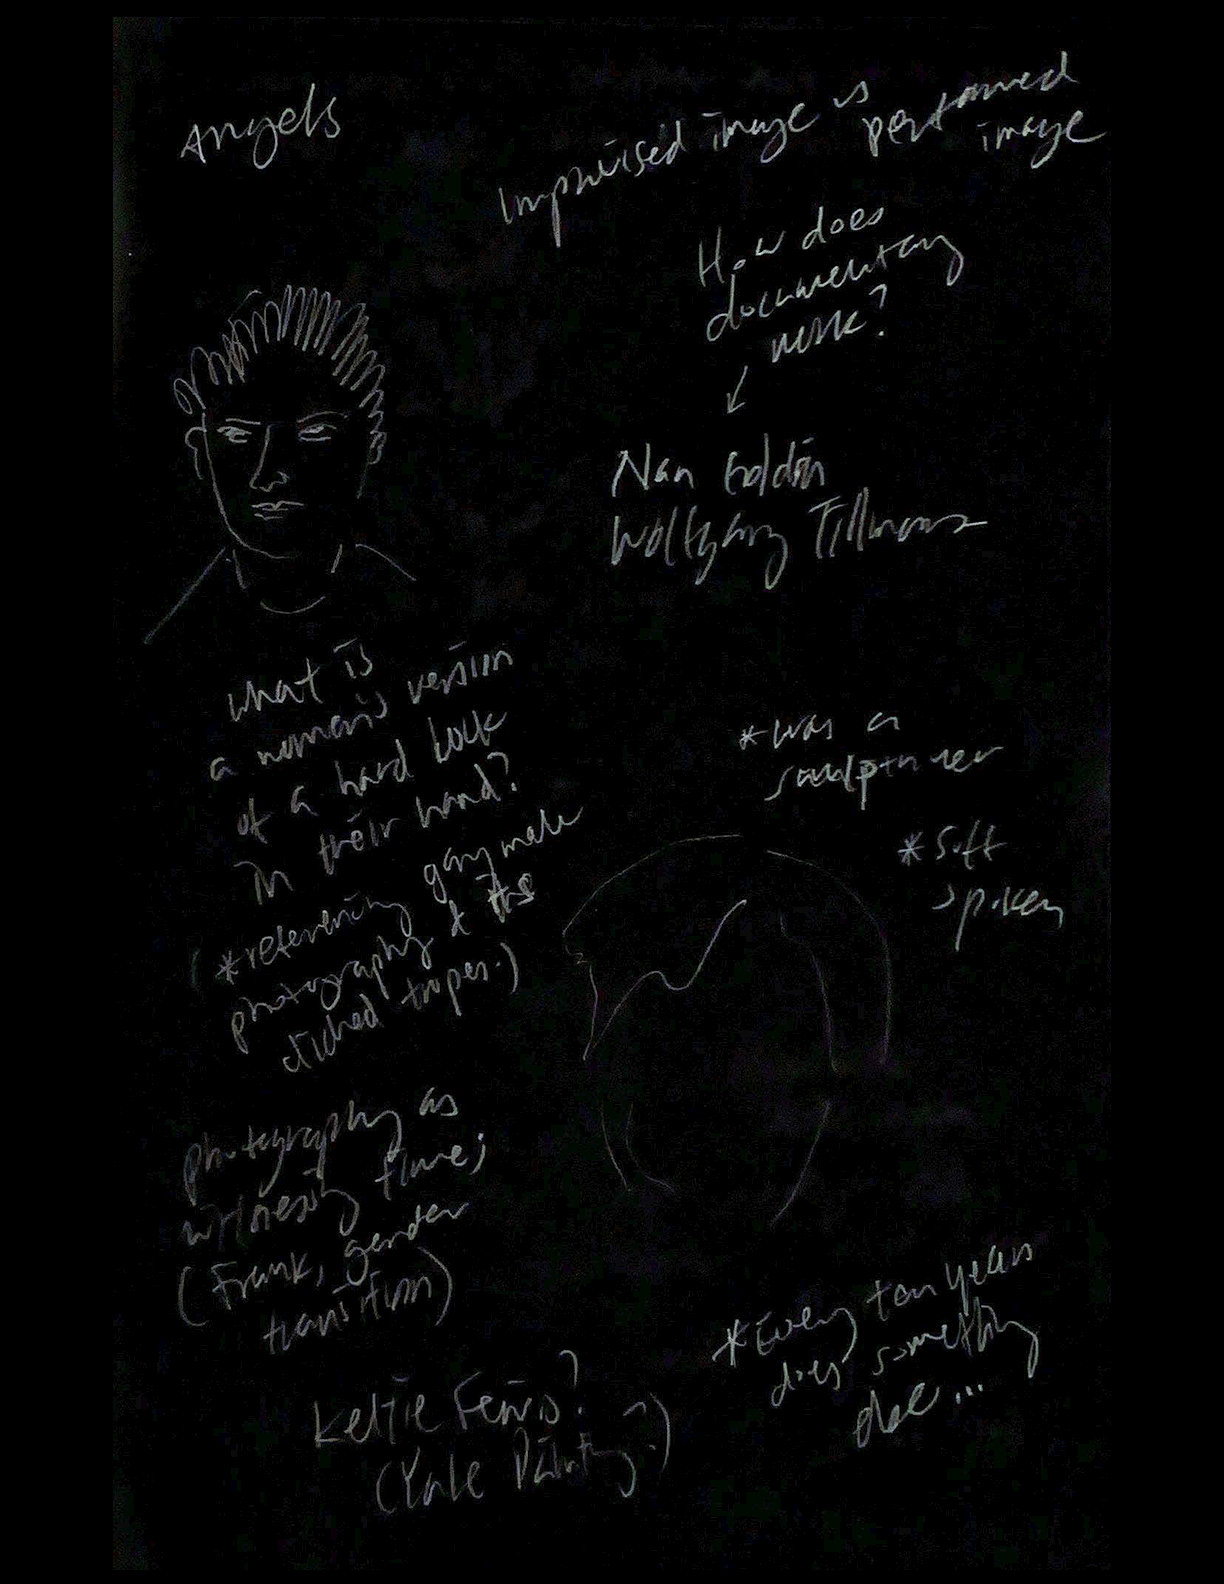 Angels
Improvised image is performed
image
How does
documentary
work?
Nan Goldin
Wolfgang Tillmans
what is
a women's version
of a hard cock
in their hand?
(*referencing gay male
photography & its
cliched tropes.)
*was a
sculpture
*soft
spoken
photography as
witnessing time;
(Frank, gender
transition)
*Every ten years
does something
else...
Keltie Ferris?
(Yale Painting?)